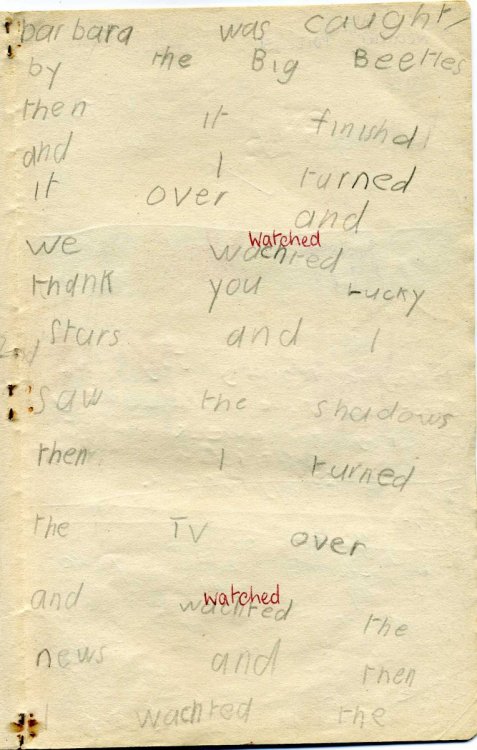 barbara was caught
by the Big Beetles
then it finishd
and I turned
it over and
watched
we wachted
thank you Lucky
Stars and I
saw the shadows
then I turned
the TV over
watched
and wachted the
news and then
I wachted the